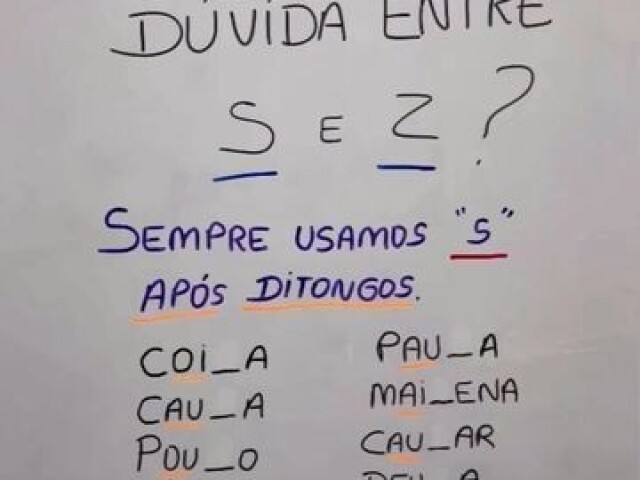 DÚVIDA ENTRE
S E Z ?
SEMPRE USAMOS "S"
APÓS DITONGOS.
COI_A
CAU_A
POU_O
PAU_A
MAI_ENA
CAU_AR